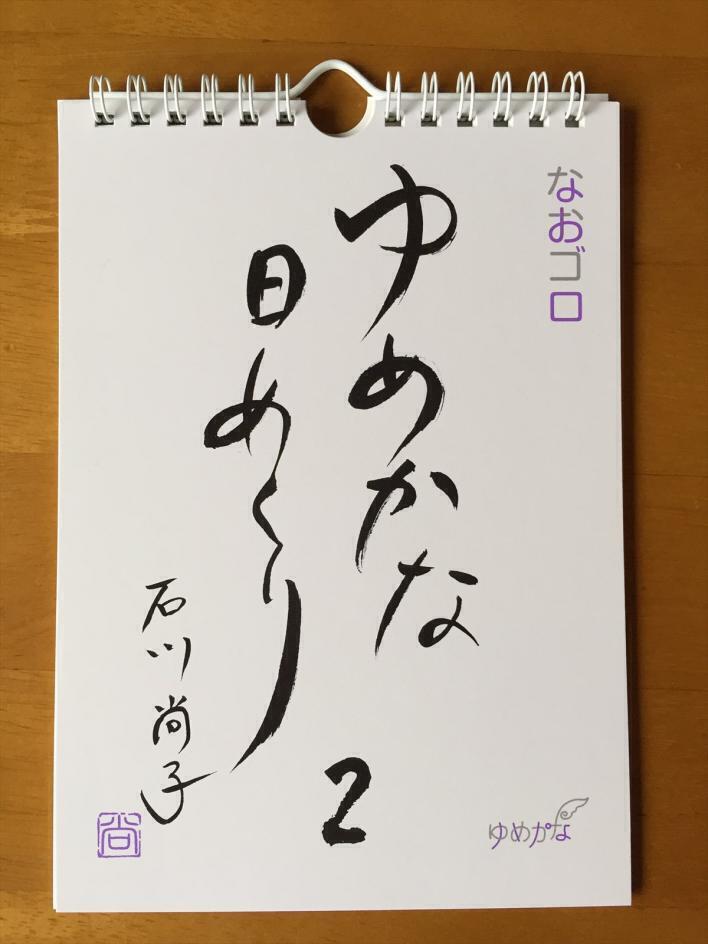 なおゴロ
ゆめかな
日めくり
2
石川尚子
尚
ゆめかな